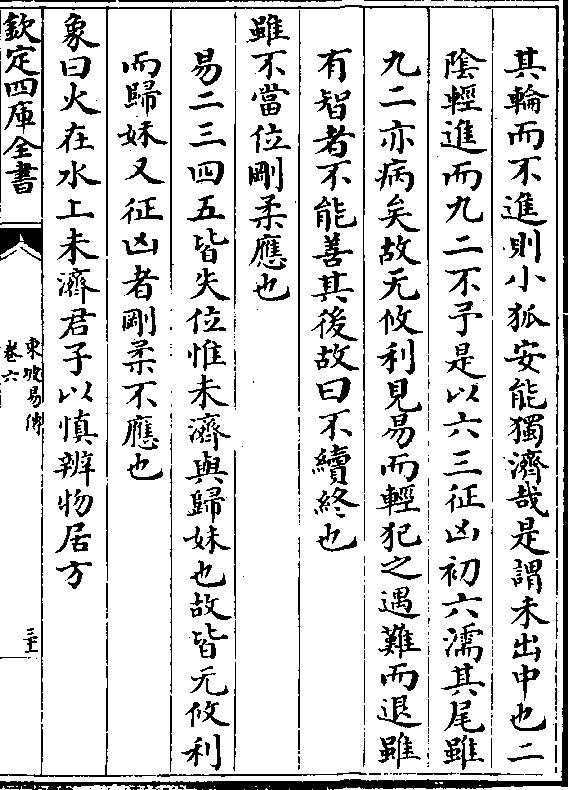 其輪而不進則小狐安能獨濟哉是謂未出中也二
陰輕進而九二不予是以六三征凶初六濡其尾雖
九二亦病矣故无攸利見易而輕犯之遇難而退雖
有智者不能善其後故曰不續終也
雖不當位剛柔應也
易二三四五皆失位惟未濟與歸妹也故皆无攸利
而歸妹又征凶者剛柔不應也
象曰火在水上未濟君子以慎辨物居方
欽定四庫全書
東坡易傳
卷六